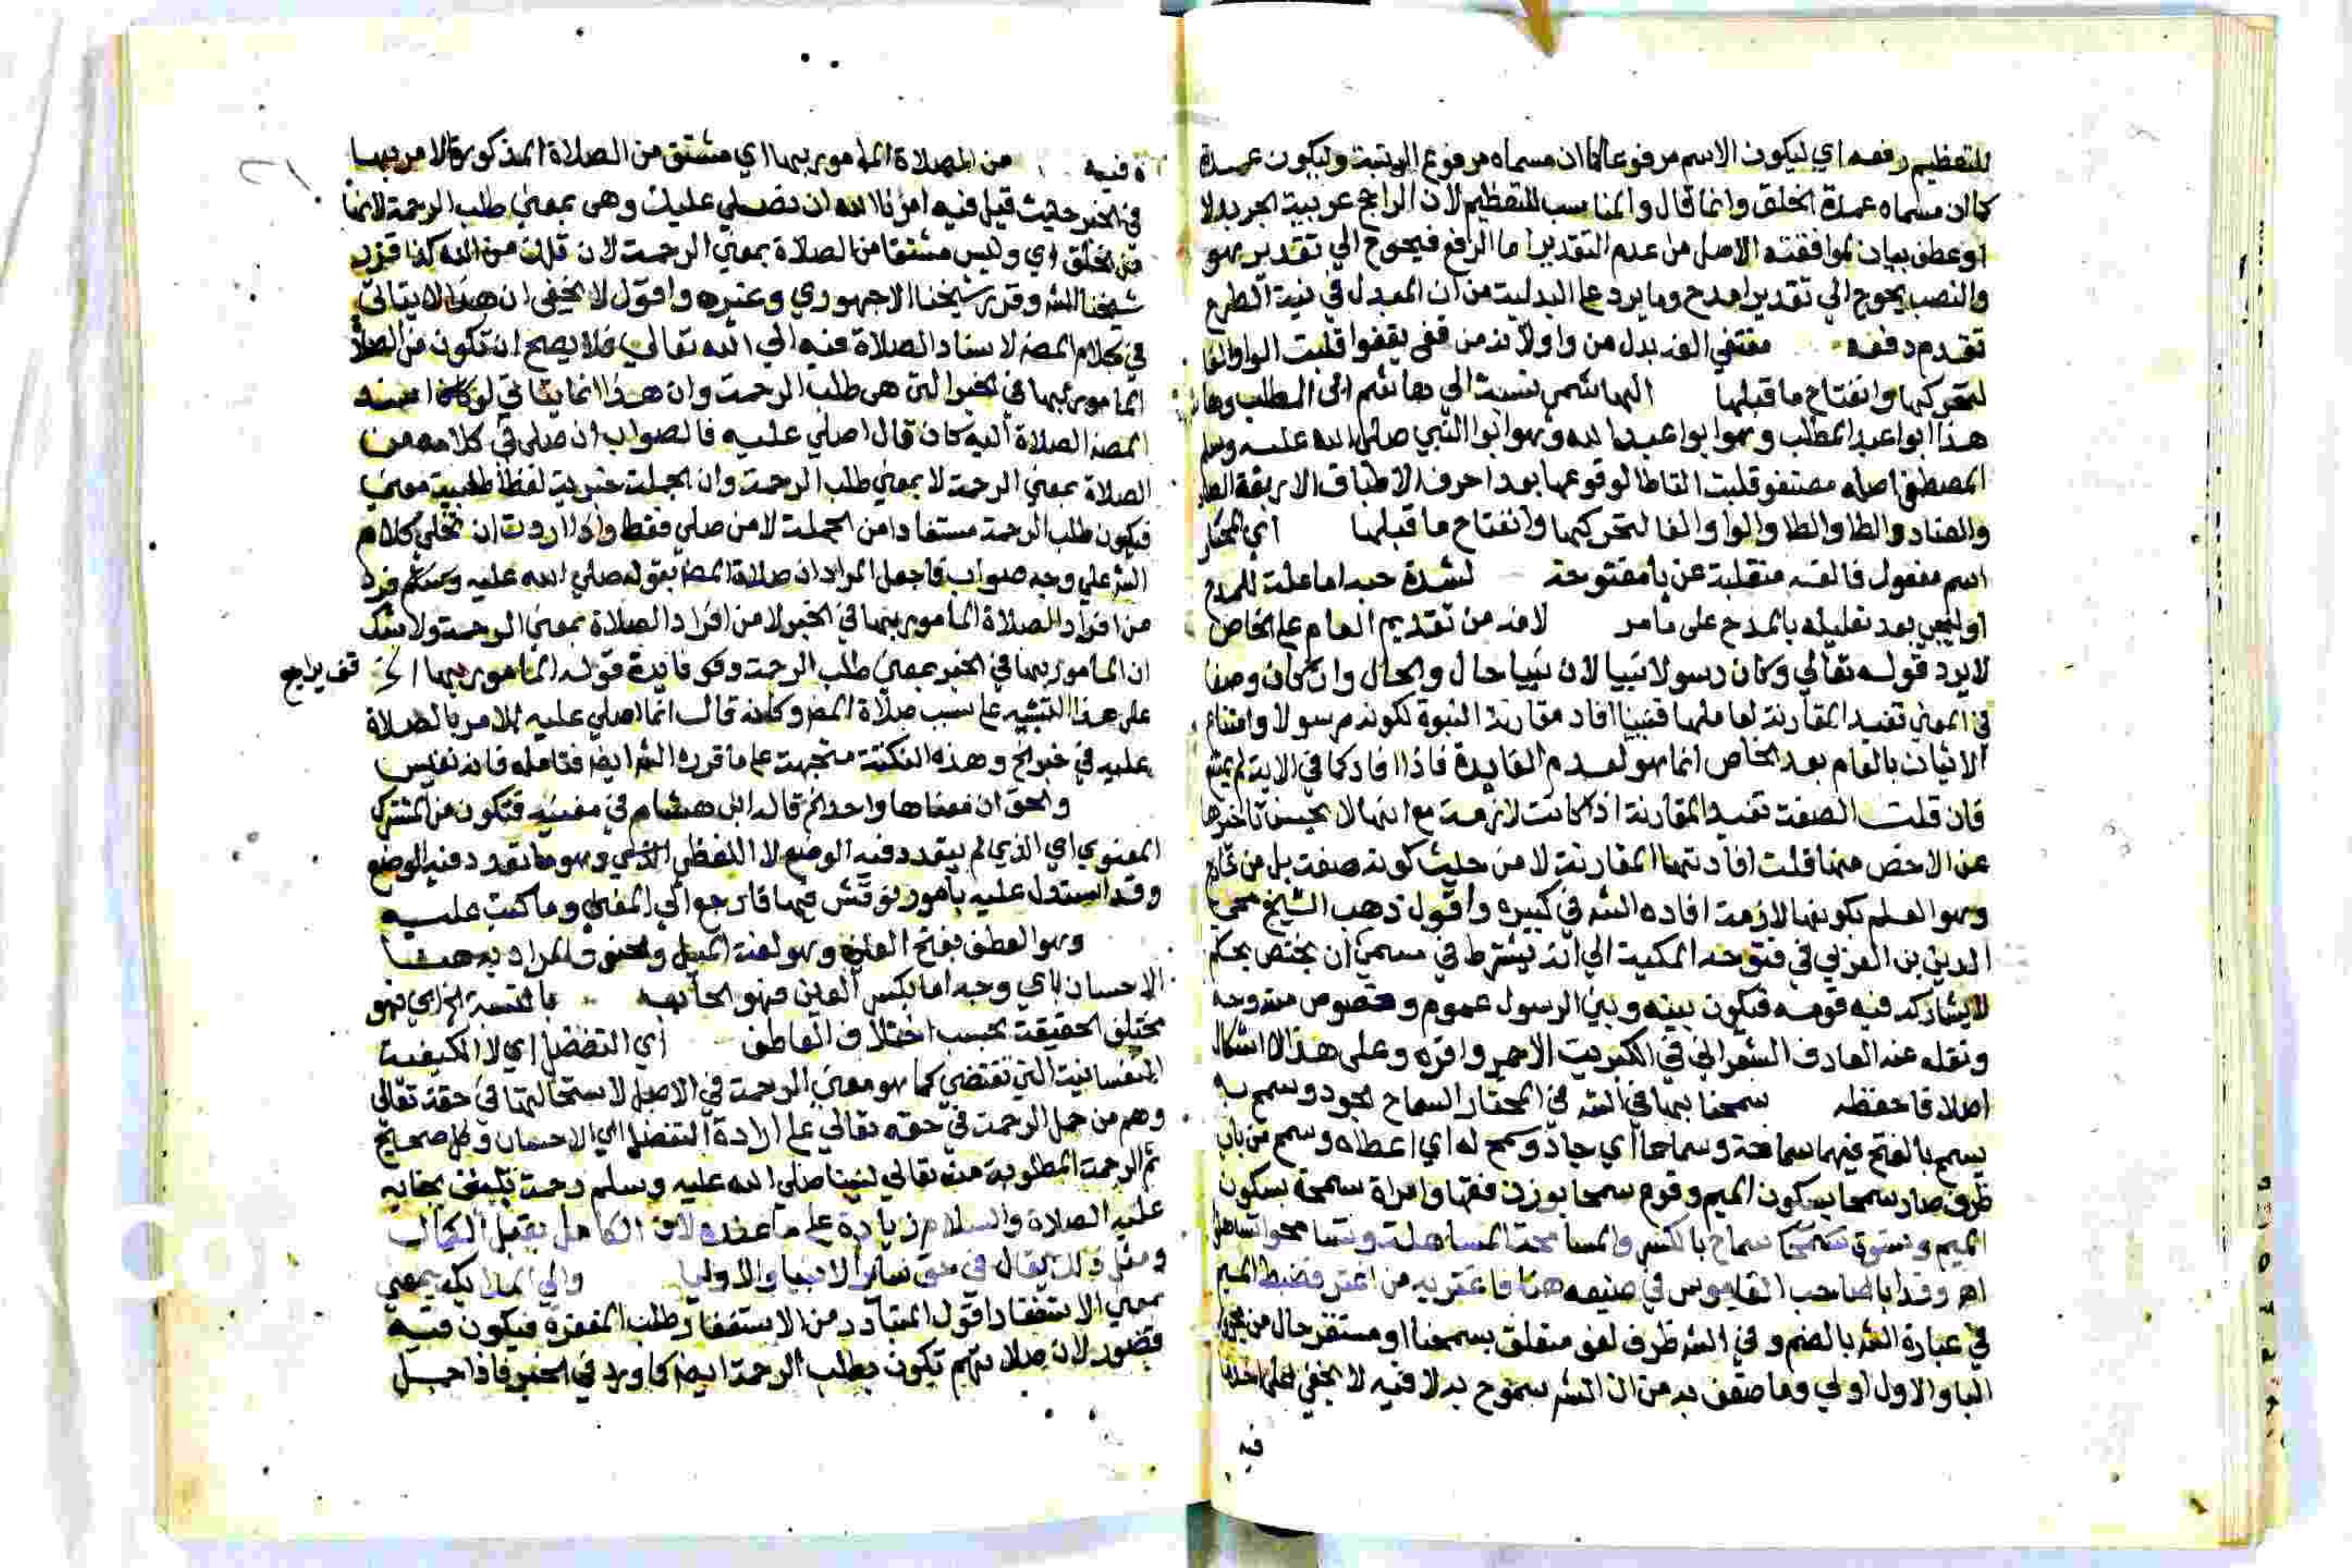 للتعظيم رفعه اي ليكون الاسم مرفوعا كما ان مسماه مرفوع الرتبة وليكون عمدة
كما ان مسماه عمدة الخلق وانما قال والمناسب للتعظيم لان الراجح عربية الجر بدلا
او عطف بيان لموافقته الاصل من عدم التقدير اما الرفع فيحوج الي تقدير هو
والنصب يحوج الي تقدير امدح وما يرد علي البدلية من ان المبدل في نية الطرح
تقدم دفعه مقتفي الفه بدل من واو لانه من قفي يقفوا قلبت الواو الفا
لتحركها وانفتاح ما قبلها الهاشمي نسبة الي هاشم ابن المطلب وهاشم
هذا ابوا عبد المطلب وهوا بوا عبد الله وهو ابوا النبي صلي الله عليه وسلم
المصطفي اصله مصتفو قلبت التا طا لوقوعها بعد احرف الاطباق الاربعة الصاد
والضاد والطا والظا والواو الفا لتحركها وانفتاح ما قبلها اي المختار
اسم مفعول فالفه منقلبة عن يا مفتوحة لشدة حبه اما علة للمدح
او للنبي بعد تعليله بالمدح على ما مر لانه من تقديم العام علي الخاص
لا يرد قوله تعالي وكان رسولا نبيا لان نبيا حال والحال وان كان وصفا
في المعني تفيد المقارنة لعاملها فنبيا افاد مقارنة النبوة لكونه مرسولا وامتناع
الاتيان بالعام بعد الخاص انما هو لعدم الفايدة فاذا افاد كما في الاية لم يمتنع
فان قلت الصفة تفيد المقارنة اذا كانت لازمة مع انها لا يحسن تاخيرها
عن الاخص منها قلت افادتها المقارنة لا من حيث كونه صفة بل من خارج
وهو العلم بكونها لازمة افاده الش في كبيره واقول ذهب الشيخ محيي
الدين بن العربي في فتوحه المكية الي انه يشترط في مسمي ان يختص بحكم
لا يشاركه فيه قومه فيكون بينه وبين الرسول عموم وخصوص من وجه
ونقله عنه العارف الشعراني في الكبريت الاحمر واقره وعلى هذا لا اشكال
اصلا فاحفظه سمحنا بها في الش في المختار السماح الجود وسمح به
يسمح بالفتح فيهما سماحة وسماحا اي جاد وسمح له اي اعطاه وسمح من باب
ظرف صار سمحا بسكون الميم وقوم سمحا بوزن فقها وامراة سمحة بسكون
الميم ونسوة سماح بالكسر والمسامحة المساهلة وتسامحوا تساهلوا
اهر وقد ابا صاحب القاموس في صنيعه هنا فاغتر به من اغتر فضبط الميم
في عبارة الش بالضم وفي الش ظرف لغو متعلق بسمحنا او مستقر حال من
البا والاول اولي وما ضعف به من ان الش سموح به لا فيه لا يخفي
فيه
ه فيه من الصلاة المامور بها اي مشتق من الصلاة المذكورة لا مر بها
في الخبر حيث قيل فيه امرنا الله ان نصلي عليك وهى بمعني طلب الرحمة لانها
من مخلق اي وليس مشتقا من الصلاة بمعني الرحمة لان قلت من الله كذا قرر
شيخنا الش وقرر شيخنا الاجهوري وغيره واقول لا يخفى ان هذا لا يتاتي
في كلام المصنف لاسناد الصلاة فيه الي الله تعالي فلا يصح ان تكون من الصلاة
المامور بها في الخبر التي هى طلب الرحمة وان هذا انما يتاتي لو كان
المصنف الصلاة اليه كان قال اصلي عليه فالصواب ان صلي في كلامه من
الصلاة بمعني الرحمة لا بمعني طلب الرحمة وان الجملة خبرية لفظا طلبية معني
فيكون طلب الرحمة مستفادا من الجملة لا من صلي فقط واذا اردت ان تحمل كلام
الش علي وجه صواب فاجعل المراد ان صلاة المصنف بقوله صلي الله عليه وسلم فرد
من افراد الصلاة المامور بها في الخبر لا من افراد الصلاة بمعني الرحمة ولا شك
ان المامور بها في الخبر بمعني طلب الرحمة وفايدة قوله المامور بها الخ
قف يراجع
علي هذا التنبيه علي سبب صلاة المصنف وكانه قال انما اصلي عليه للامر بالصلاة
عليه في خبر الخ وهذه النكتة متجهة علي ما قرره الش ايضا فتامله فانه نفيس
والحق ان معناها واحد الخ قاله ابن هشام في مغنيه فتكون من المشترك
المعنوي اي الذي لم يتعدد فيه الوضع لا اللفظي الذي وهو ما تعدد فيه الوضع
وقد استدل عليه بامور نوقش فيها فارجع الي المغني وما كتب عليه
وهو العطف بفتح العين وهو لغة الميل والحنو والمراد به هنا
الاحسان باي وجه اما بكسر العين فهو الجانب بالنسبة الخ اي فهو
مختلف الحقيقة بحسب اختلاف العاطف اي التفضل اي لا الكيفية
النفسانية التي تقتضي كما هو معني الرحمة في الاصل لاستحالتها في حقه تعالي
وهم من حمل الرحمة في حقه تعالي علي ارادة التفضل اي الاحسان وكل صحيح
ثم الرحمة المطلوبة منه تعالي لنبينا صلي الله عليه وسلم رحمة تليق بجنابه
عليه الصلاة والسلام زيادة علي ما عنده لان الكامل يقبل الكمال
ومثل ذلك يقال في حق ساير الانبيا والاوليا والي الملايكة بمعني
بمعني الاستغفار اقول المتبادر من الاستغفار طلب المغفرة فيكون فيه
قصور لان صلاتهم تكون بطلب الرحمة ايضا كما ورد في الخبر فاذا حمل